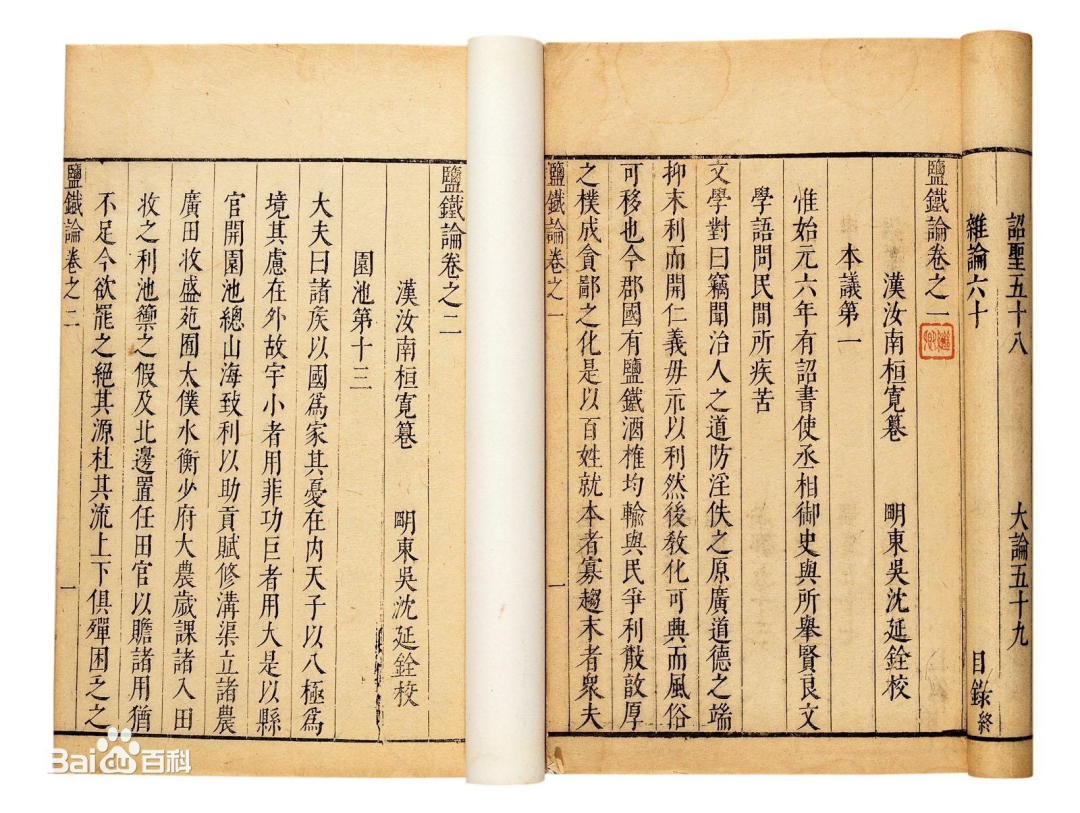 詔聖五十八 大論五十九
雜論六十 目錄終
鹽鐵論卷之一
漢汝南桓寬篹 明東吳沈延銓校
本議第一
惟始元六年有詔書使丞相御史與所舉賢良文
學語問民間所疾苦
文學對曰竊聞治人之道防淫佚之原廣道德之端
抑末利而開仁義毋示以利然後教化可興而風俗
可移也今郡國有鹽鐵酒榷均輸與民爭利散敦厚
之樸成貪鄙之化是以百姓就本者寡趨末者衆夫
鹽鐵論卷之一 一
鹽鐵論卷之二
漢汝南桓寬篹 明東吳沈延銓校
園池第十三
大夫曰諸矦以國爲家其憂在內天子以八極爲
境其慮在外故宇小者用菲功巨者用大是以縣
官開園池總山海致利以助貢賦修溝渠立諸農
廣田收盛苑囿太僕水衡少府大農歲課諸入田
收之利池籞之假及北邊置任田官以贍諸用猶
不足今欲罷之絕其源杜其流上下俱殫困乏之
鹽鐵論卷之二 一
Baidu百科